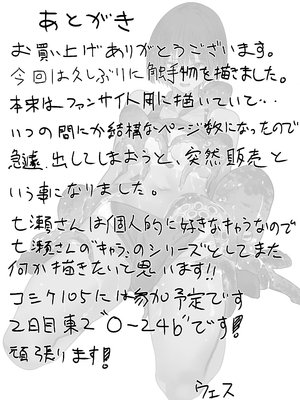 あとがき
お買い上げありがとうございます。
今回は久しぶりに触手物を描きました。
本来はファンサイト用に描いていて‥
いつの間にか結構なページ数になったので
急遽、出してしまおうと、突然販売と
いう事になりました。
七瀬さんは個人的に好きなキャラなので
七瀬さんの"キャラ"のシリーズとしてまた
何か描きたいて思います!!
コミケ105には参加予定です
2日目東2"O-24b"です!
頑張ります!
ウエス